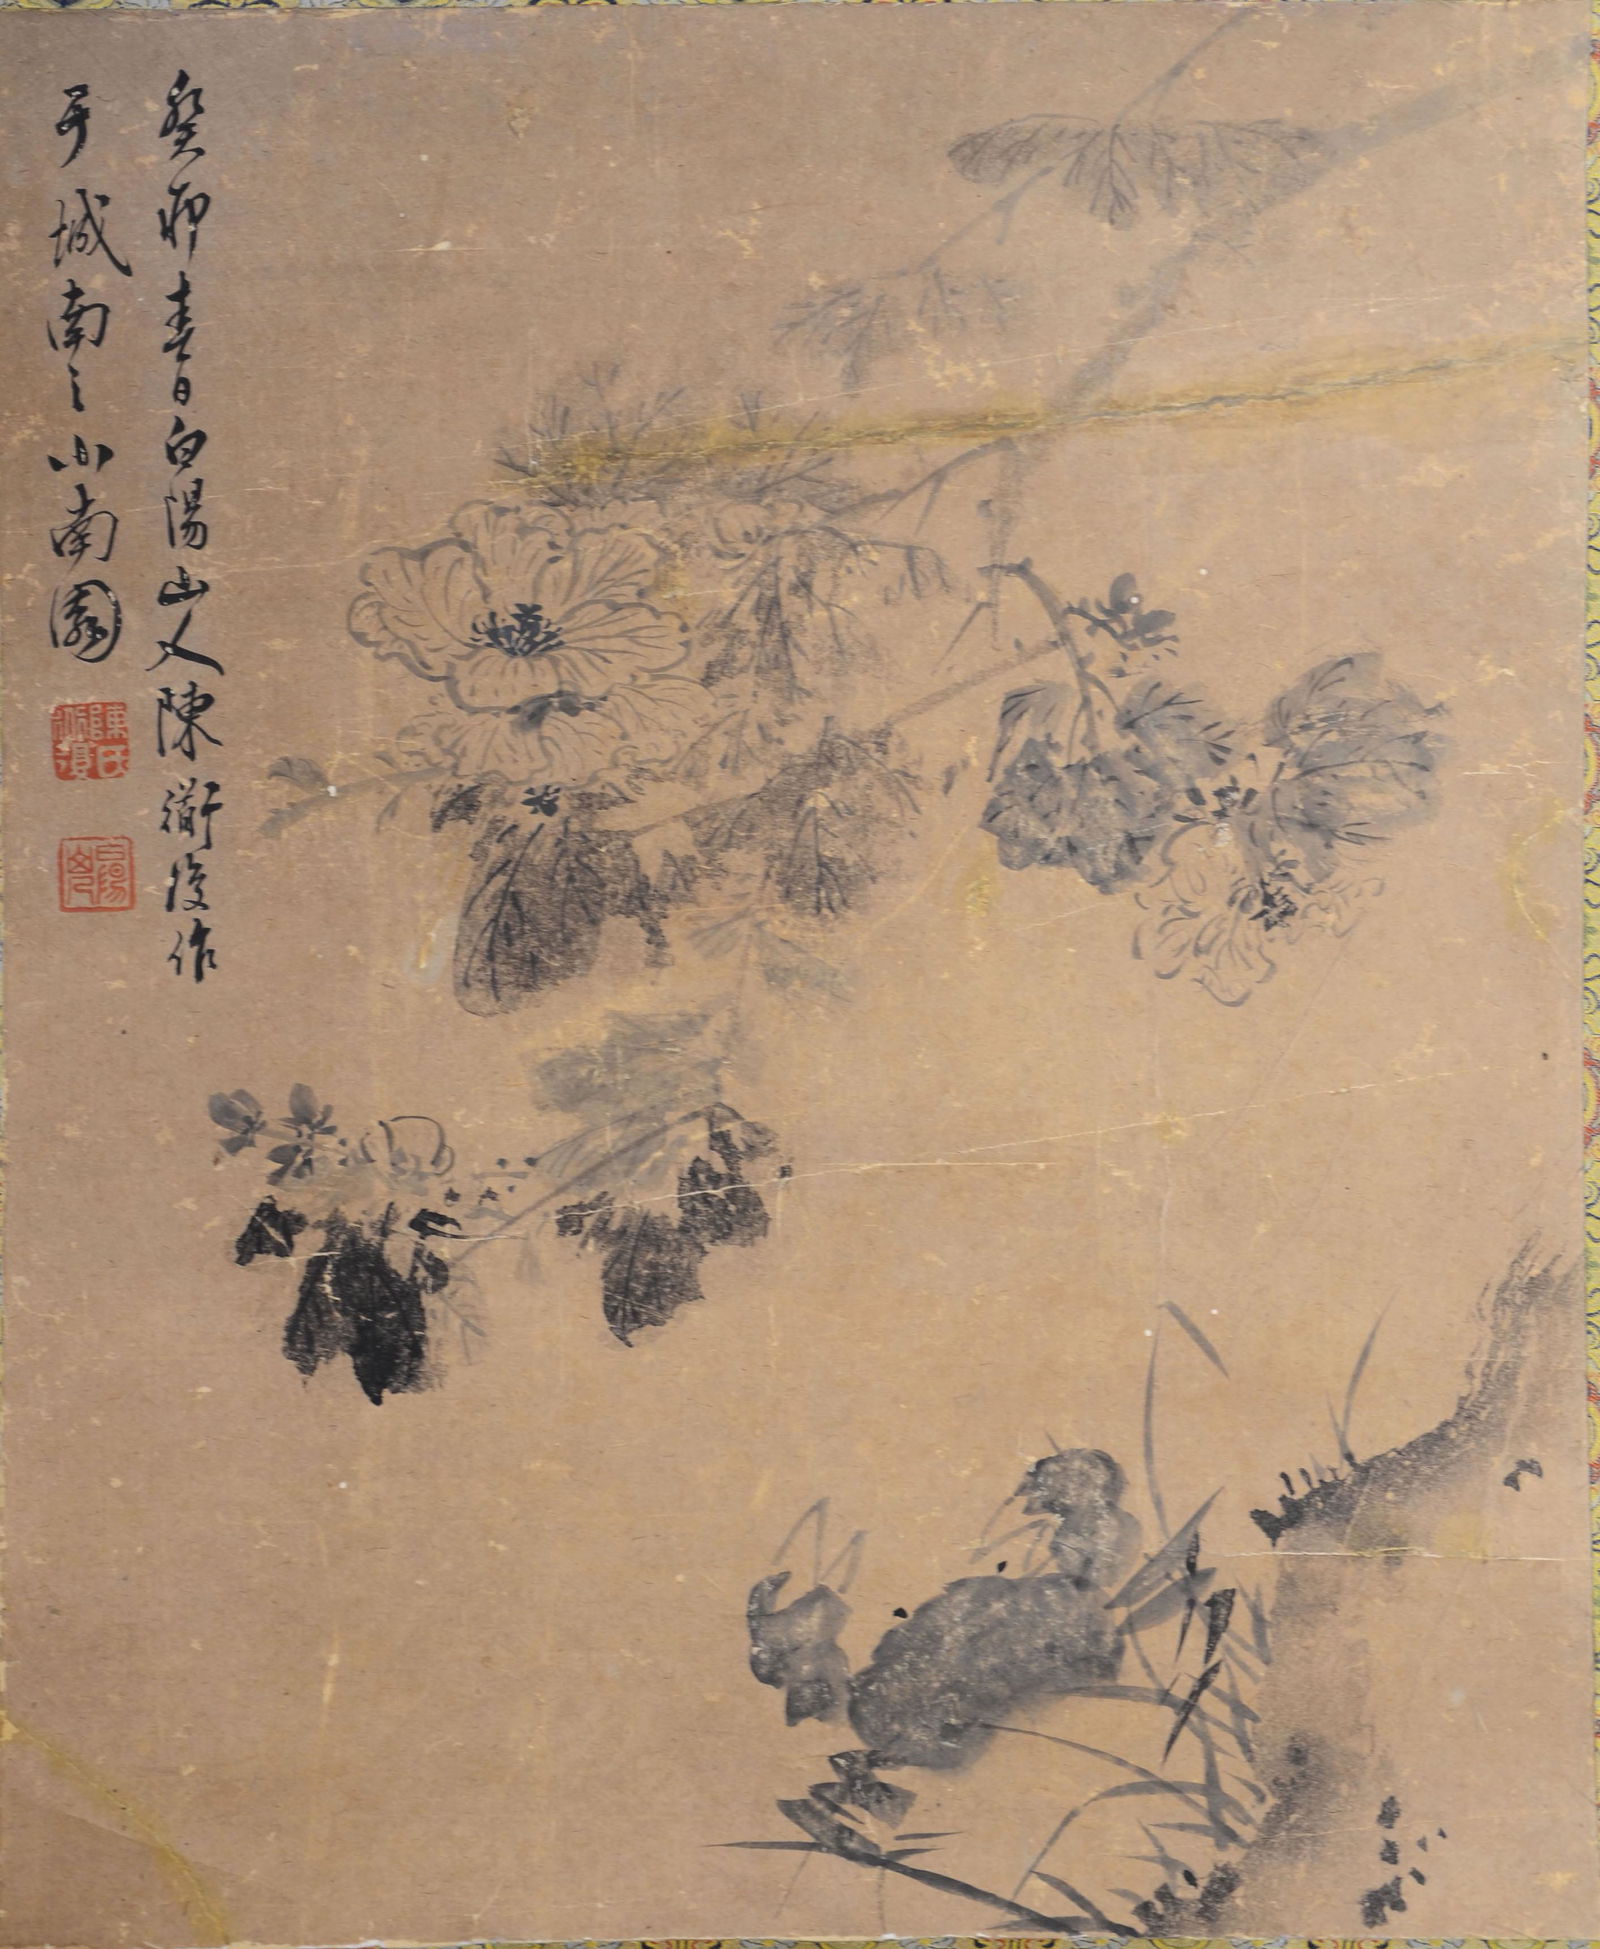 癸卯春日白陽山人陳衜復作
于城南之小南園
陳氏道復
白陽山人